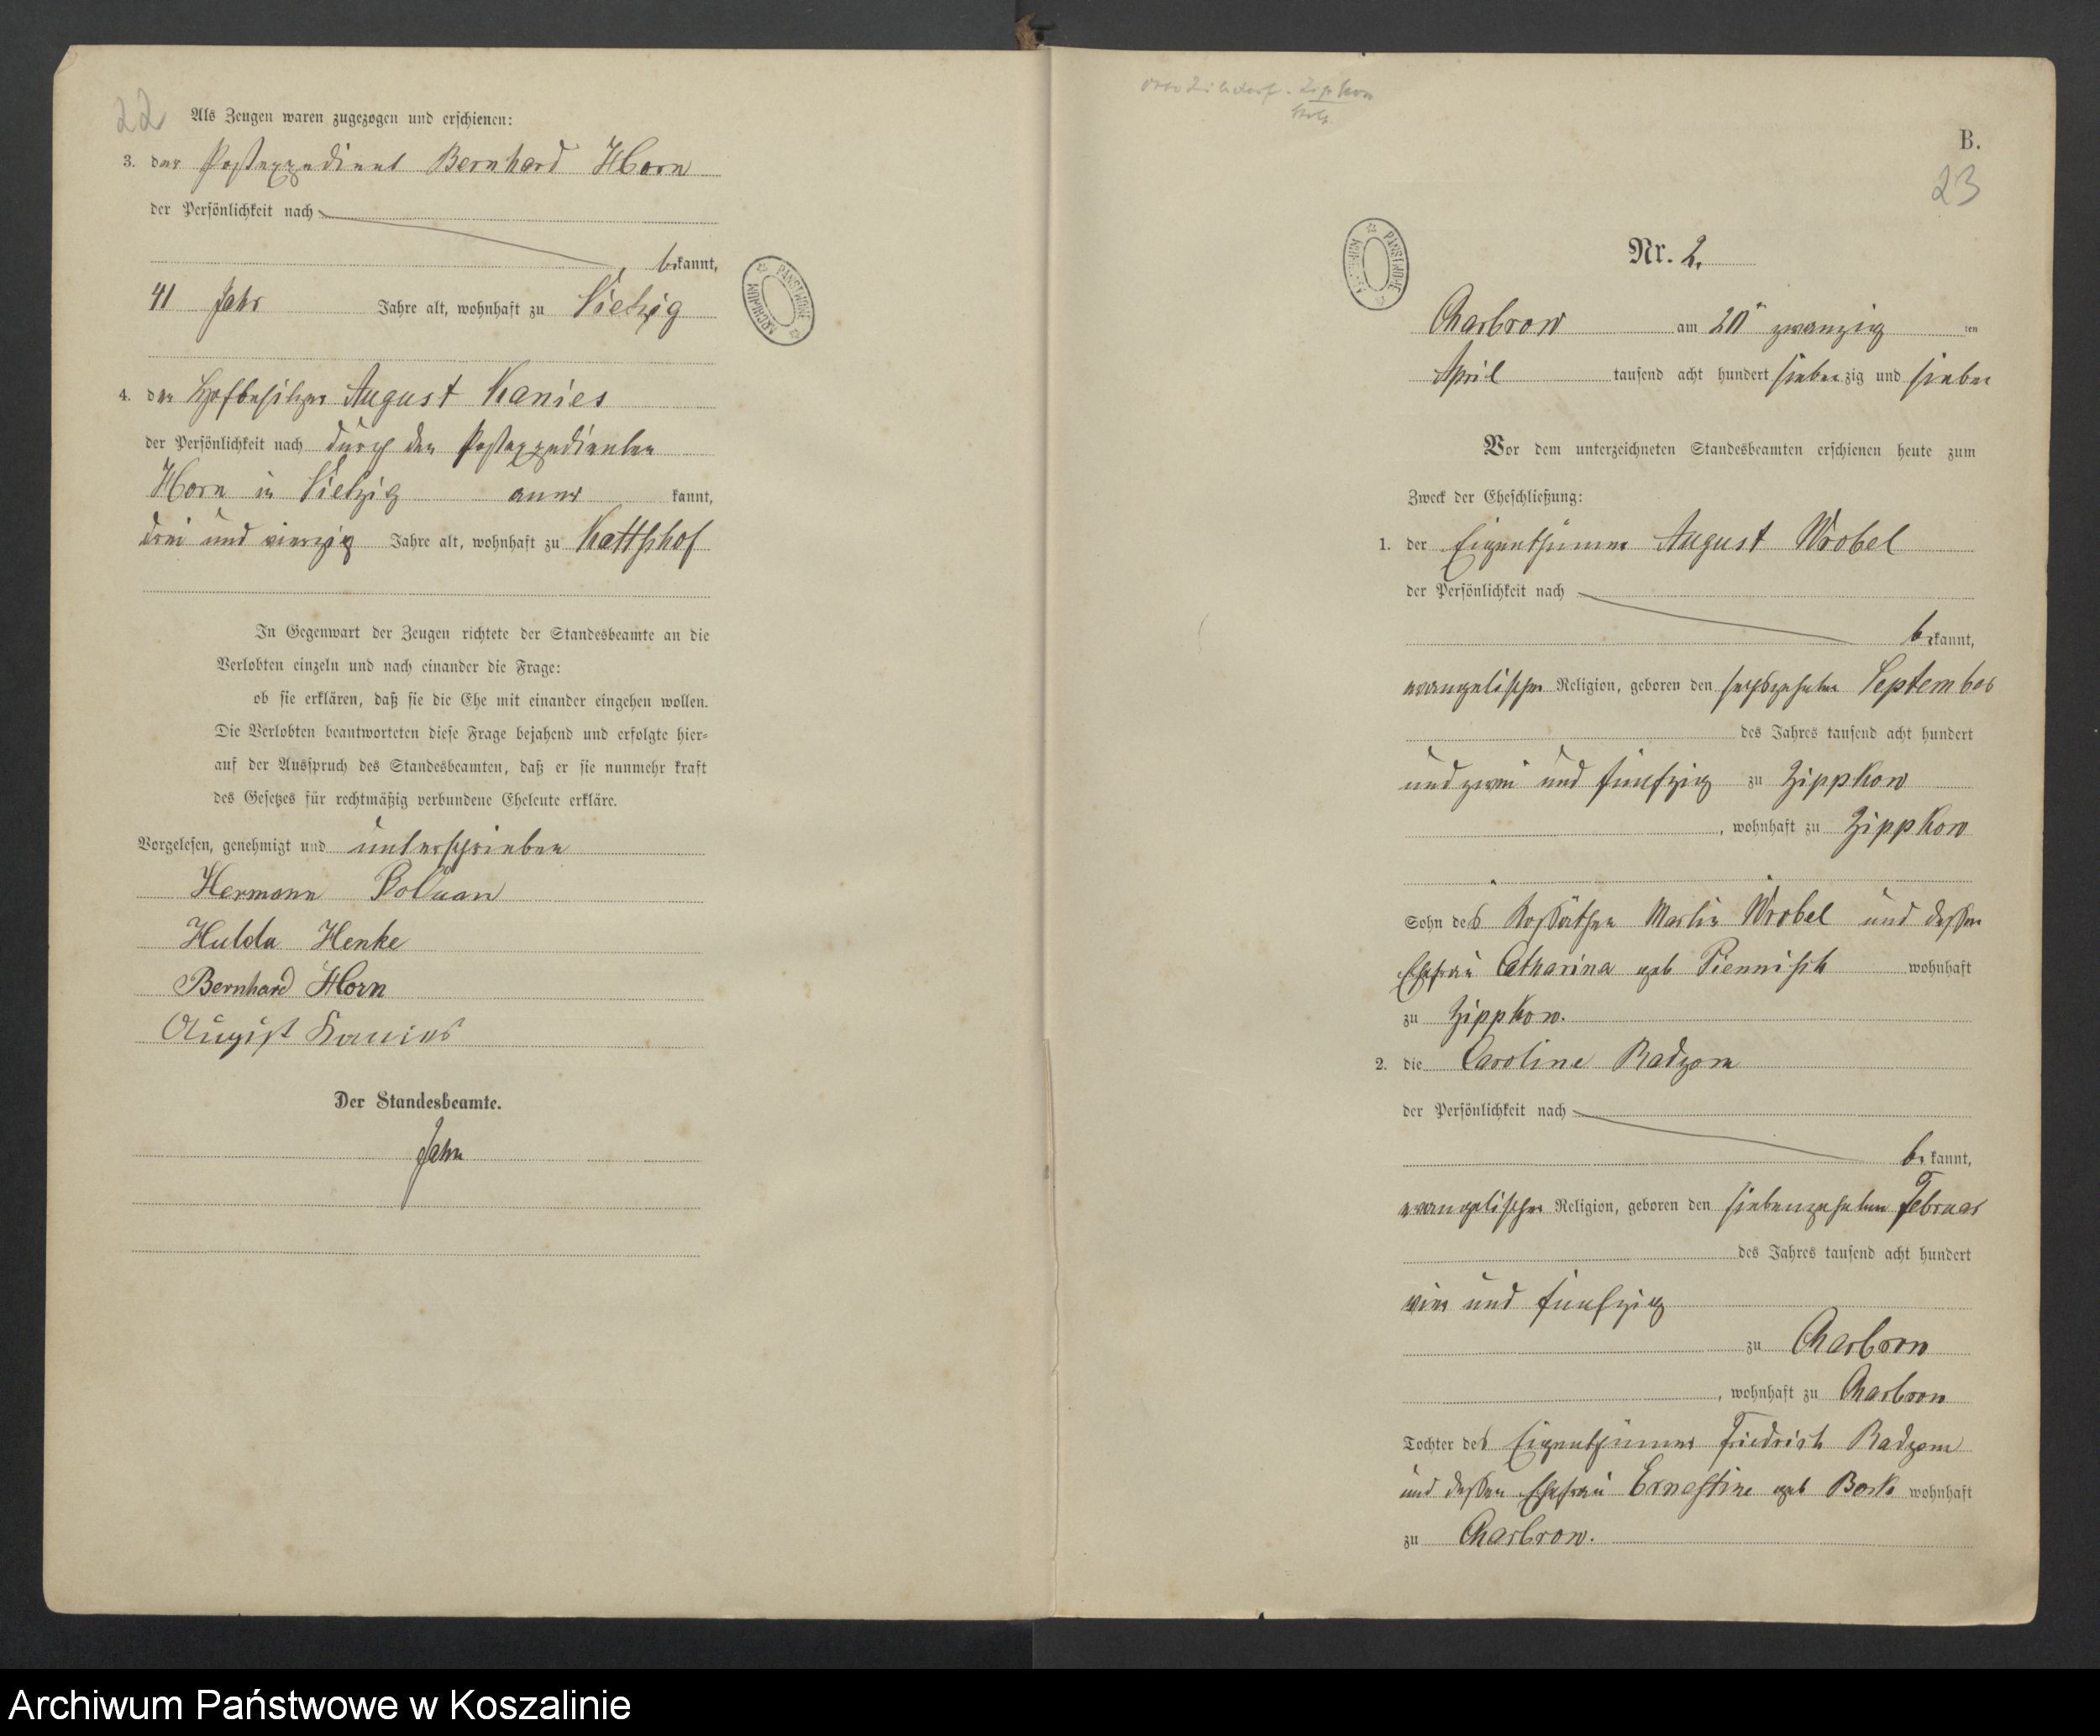 22
Als Zeugen waren zugezogen und erschienen:
3. der Postexpedient Bernhard Horn
der Persönlichkeit nach
bekannt,
41 Jahr Jahre alt, wohnhaft zu Vietzig
4. der Hofbesitzer August Kanies
der Persönlichkeit nach durch den Postexpedienten
Horn in Vietzig aner kannt,
drei und vierzig Jahre alt, wohnhaft zu
In Gegenwart der Zeugen richtete der Standesbeamte an die
Verlobten einzeln und nach einander die Frage:
ob sie erklären, daß sie die Ehe mit einander eingehen wollen.
Die Verlobten beantworteten diese Frage bejahend und erfolgte hier=
auf der Ausspruch des Standesbeamten, daß er sie nunmehr kraft
des Gesetzes für rechtmäßig verbundene Eheleute erkläre.
Vorgelesen, genehmigt und unterschrieben
Hermann
Hulda Henke
Bernhard Horn
August Kanies
Der Standesbeamte.
Jahn
ARCHIWUM PAŃSTWOWE
Zipkow
B.
23
ARCHIWUM PAŃSTWOWE
Nr. 2.
Charbrow am 20 zwanzig ten
April tausend acht hundert siebenzig und sieben
Vor dem unterzeichneten Standesbeamten erschienen heute zum
Zweck der Eheschließung:
1. der Eigenthümer August Wrobel
der Persönlichkeit nach
bekannt,
evangelischer Religion, geboren den sechszehnten September
des Jahres tausend acht hundert
und zwei und fünfzig zu Zippkow
, wohnhaft zu Zippkow
Sohn des Kossäthen Martin Wrobel und dessen
Ehefrau Catharina geb Piennisch wohnhaft
zu Zippkow.
2. die Caroline Radzom
der Persönlichkeit nach
be kannt,
evangelischer Religion, geboren den siebenzehnten Februar
des Jahres tausend acht hundert
vier und fünfzig
zu Charbrow
, wohnhaft zu Charbrow
Tochter des Eigenthümer Friedrich Radzom
und dessen Ehefrau Ernestine geb Bork wohnhaft
zu Charbrow.
Archiwum Państwowe w Koszalinie